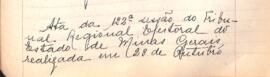 Ata da 122ª sessão do Tribu-
nal Regional Eleitoral do
Estado de Minas Gerais,
realizada em 28 de Outubro